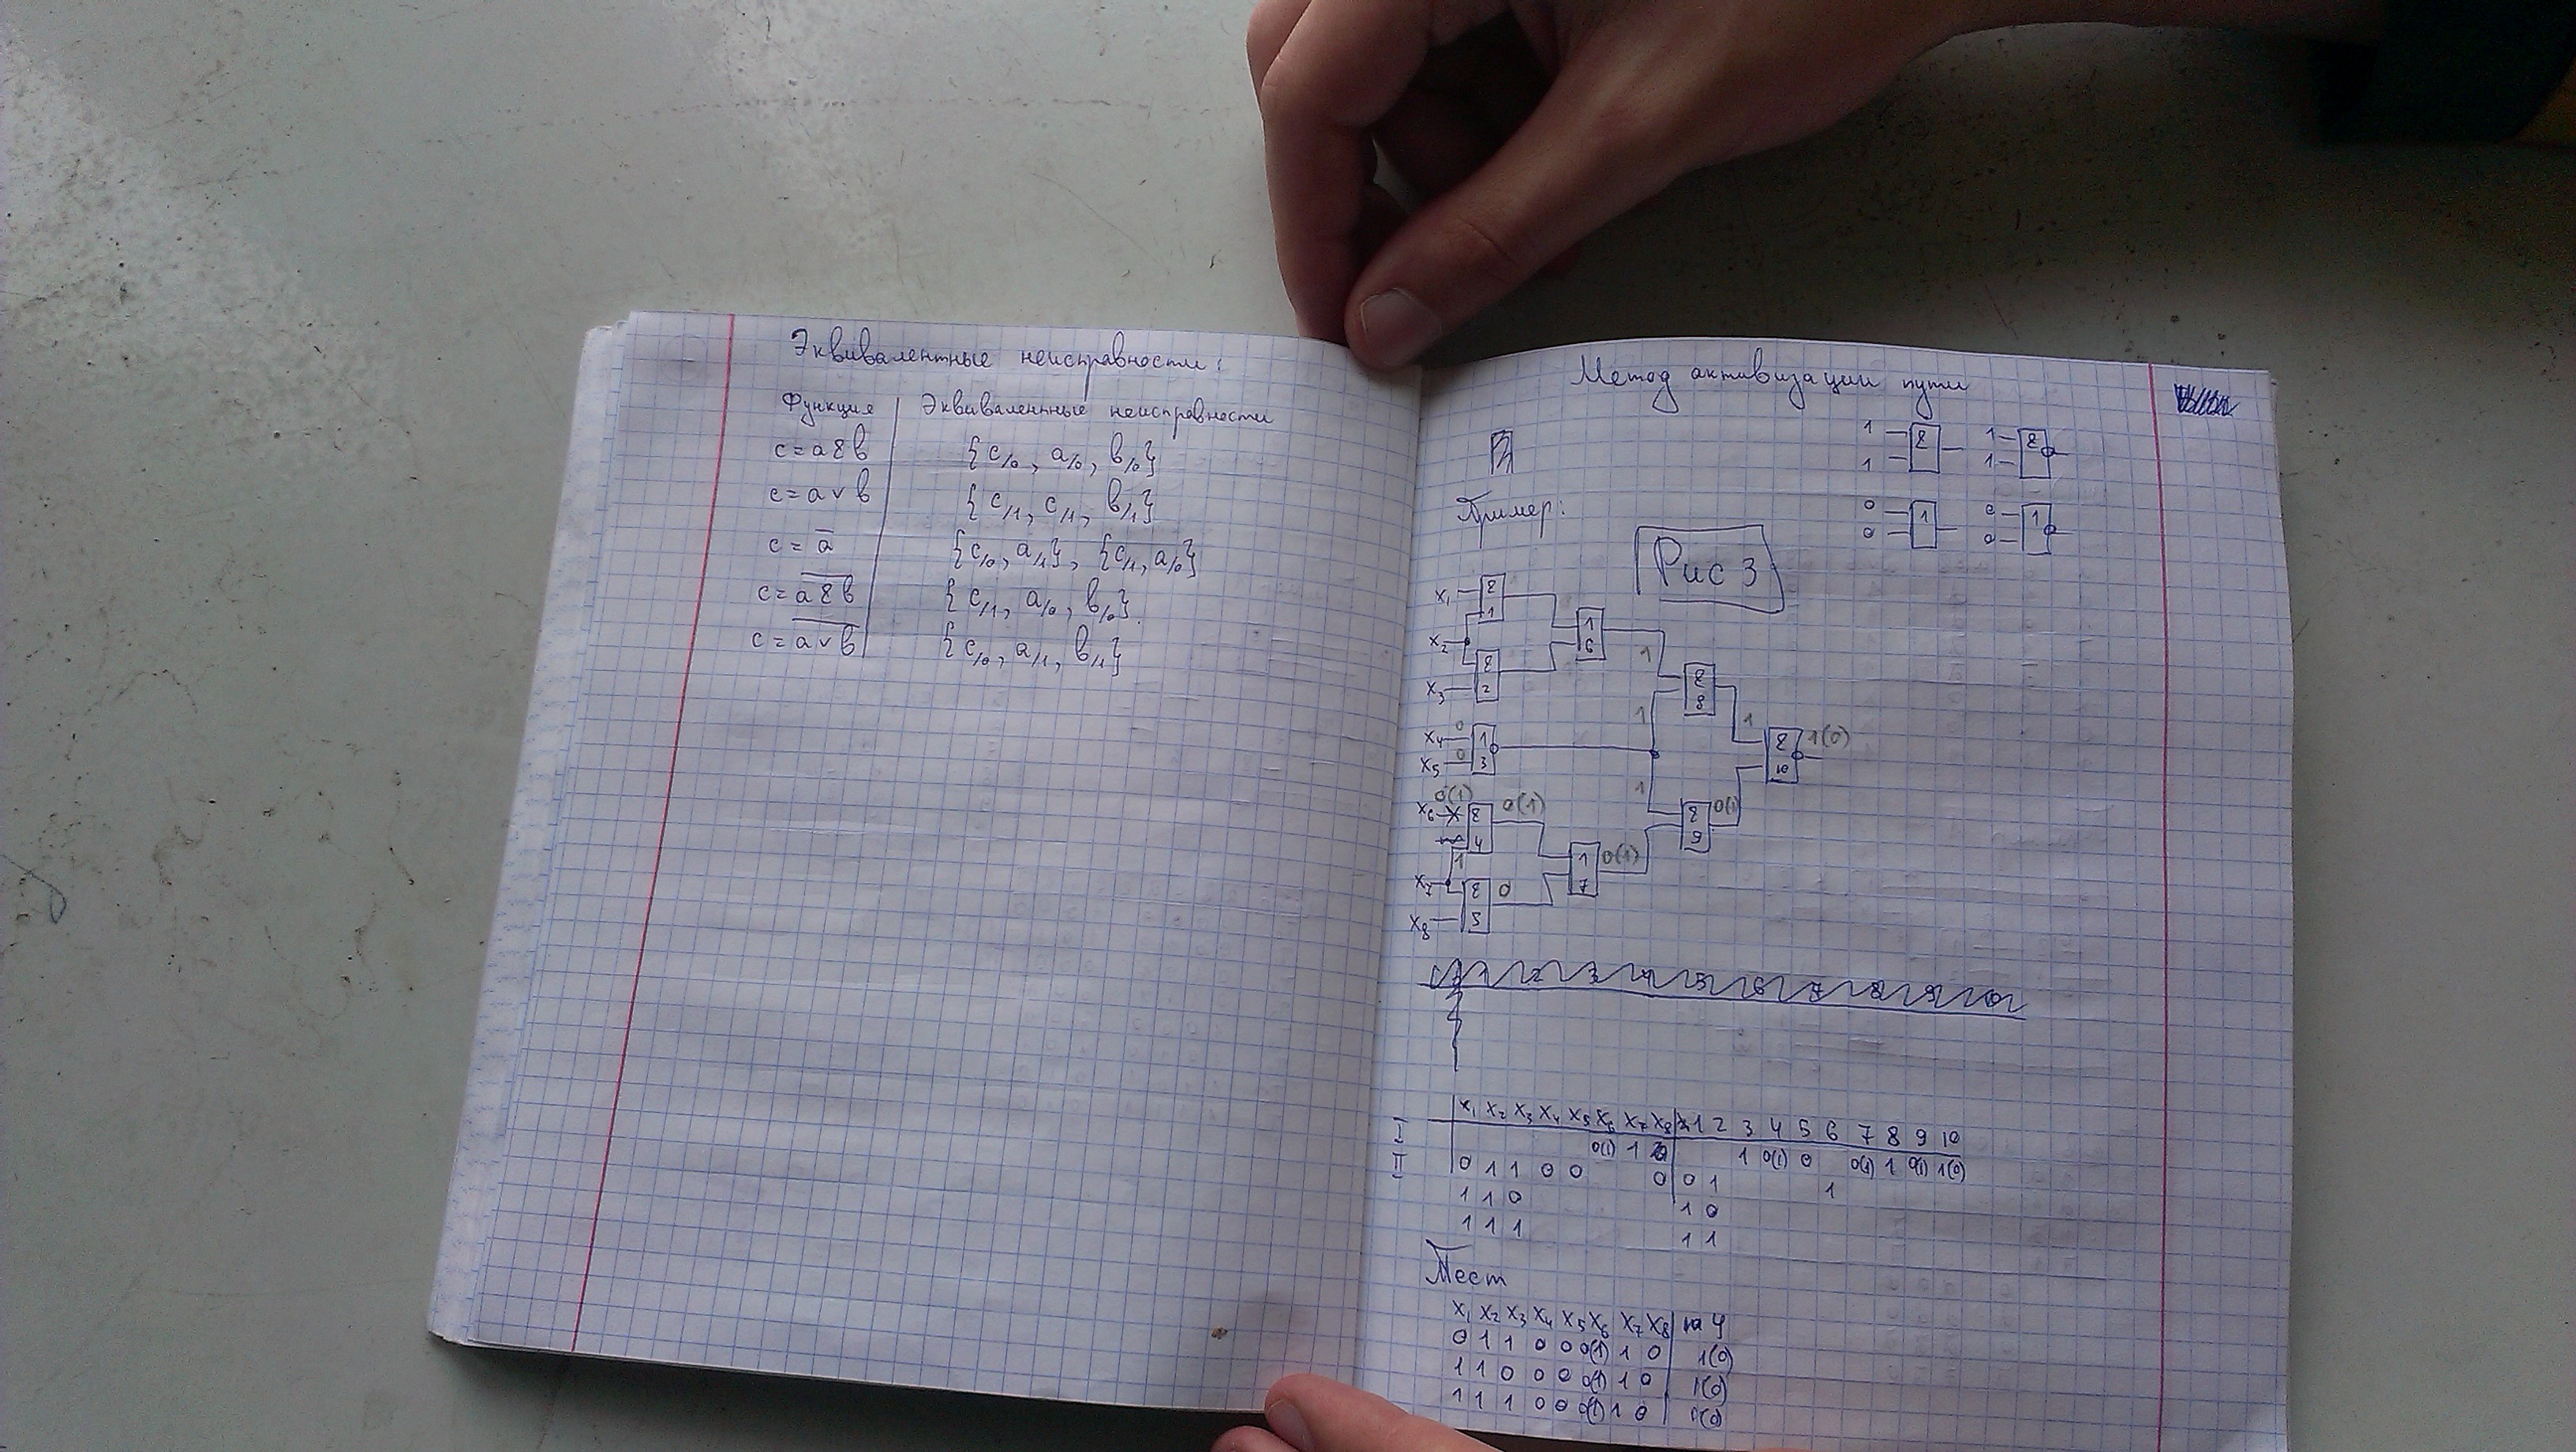 Эквивалентные неисправности:
Функция | Эквивалентные неисправности
c = a & b {c/0, a/0, b/0}
c = a v b {c/1, c/1, b/1}
c = a̅ {c/0, a/1}, {c/1, a/0}
c = a̅ ̅&̅ ̅b̅ {c/1, a/0, b/0}.
c = a̅ ̅v̅ ̅b̅ {c/0, a/1, b/1}
Метод активизации пути
1 & 1 &
1 1
Пример:
0 1 0 1
0 0
Рис 3
x1 &
1
x2 1
6
&
x3 2 1
&
8
x4 0 1 1 1
x5 0 3 & 1(0)
10
0(1)
x6 & 0(1) 1 & 0(1)
4 9
1 1 0(1)
x7 & 0 7
x8 5
x1 x2 x3 x4 x5 x6 x7 x8 1 2 3 4 5 6 7 8 9 10
I 0(1) 1 1 0(1) 0 0(1) 1 0(1) 1(0)
II 0 1 1 0 0 0 0 1 1
1 1 0 1 0
1 1 1 1 1
Тест
x1 x2 x3 x4 x5 x6 x7 x8 на y
0 1 1 0 0 0(1) 1 0 1(0)
1 1 0 0 0 0(1) 1 0 1(0)
1 1 1 0 0 0(1) 1 0 1(0)